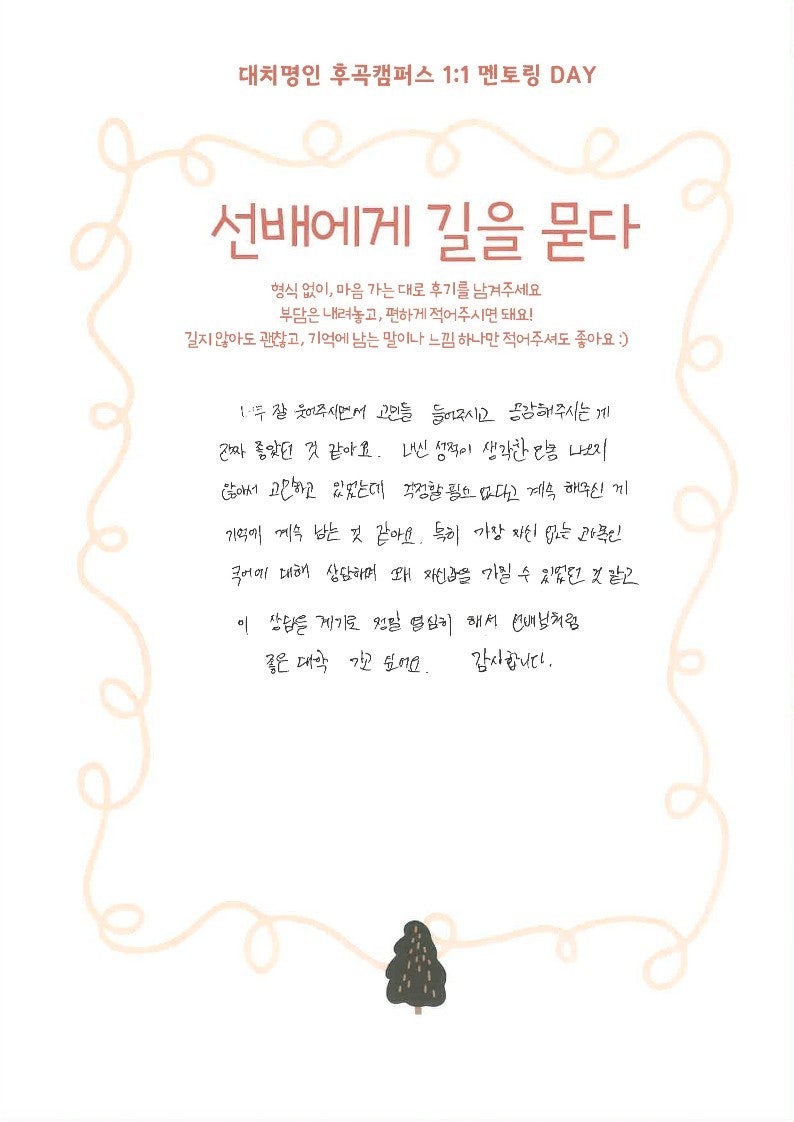 대치명인 후곡캠퍼스 1:1 멘토링 DAY
선배에게 길을 묻다
형식 없이, 마음 가는 대로 후기를 남겨주세요
부담은 내려놓고, 편하게 적어주시면 돼요!
길지 않아도 괜찮고, 기억에 남는 말이나 느낌 하나만 적어주셔도 좋아요 :)
너무 잘 웃어주시면서 고민들 들어주시고 공감해주시는 게
진짜 좋았던 것 같아요. 내신 성적이 생각한 만큼 나오지
않아서 고민하고 있었는데 걱정할 필요 없다고 계속 해주신 게
기억에 계속 남는 것 같아요. 특히 가장 자신 없는 과목인
국어에 대해 상담하며 꽤 자신감을 가질 수 있었던 것 같고
이 상담을 계기로 정말 열심히 해서 선배님처럼
좋은 대학 가고 싶어요. 감사합니다.